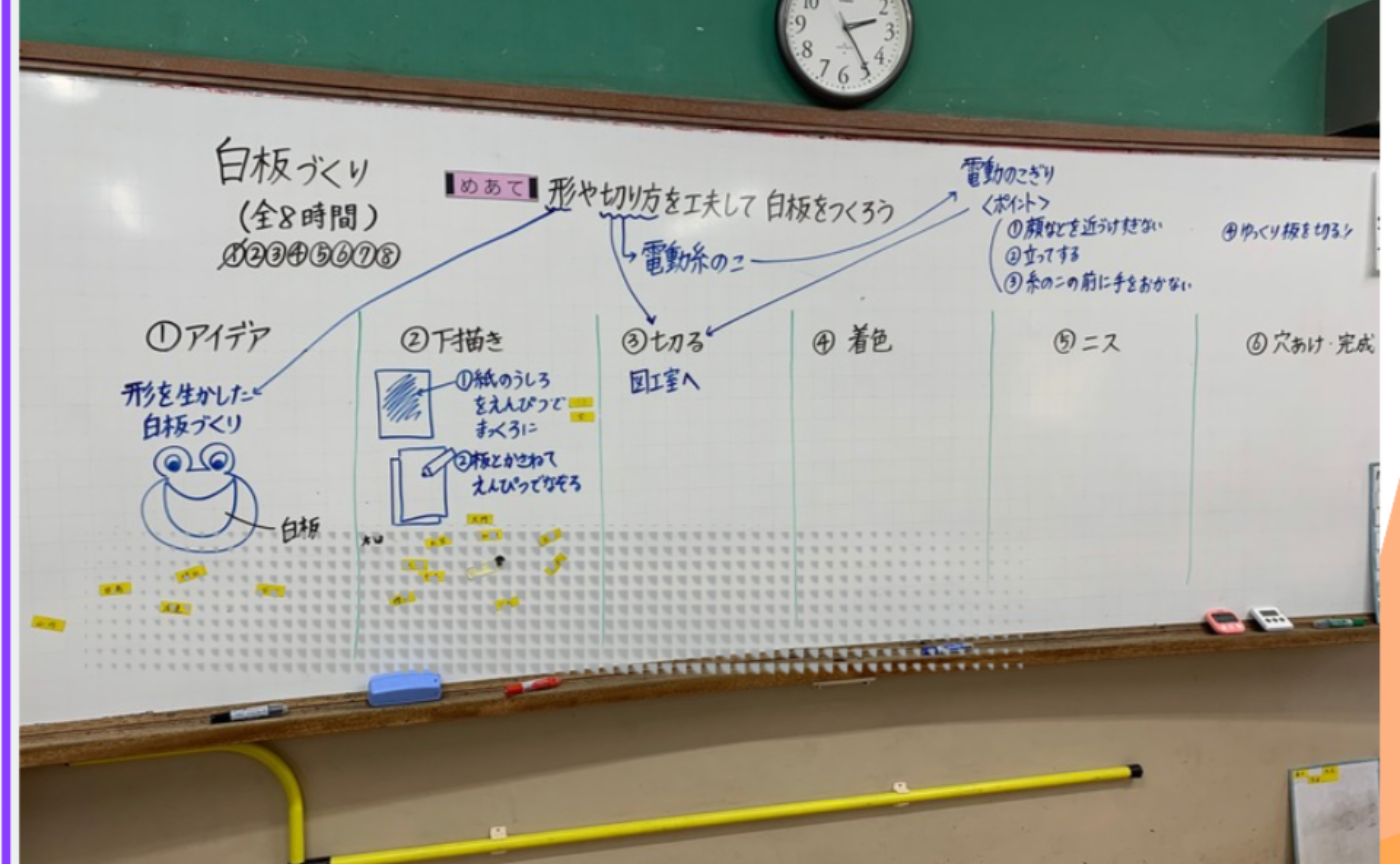 白板づくり
(全8時間)
①②③④⑤⑥⑦⑧
めあて 形や切り方を工夫して 白板をつくろう
電動糸のこ
電動のこぎり
〈ポイント〉
①顔などを近づけすぎない
②立ってする
③糸のこの前に手をおかない
④ゆっくり板を切る!!
①アイデア
形を生かした
白板づくり
白板
②下描き
①紙のうしろ
をえんぴつで
まっくろに
②板とかさねて
えんぴつでなぞる
③切る
図工室へ
④ 着色
⑤ニス
⑥穴あけ・完成
10
9
8
7
6
5
4
3
2